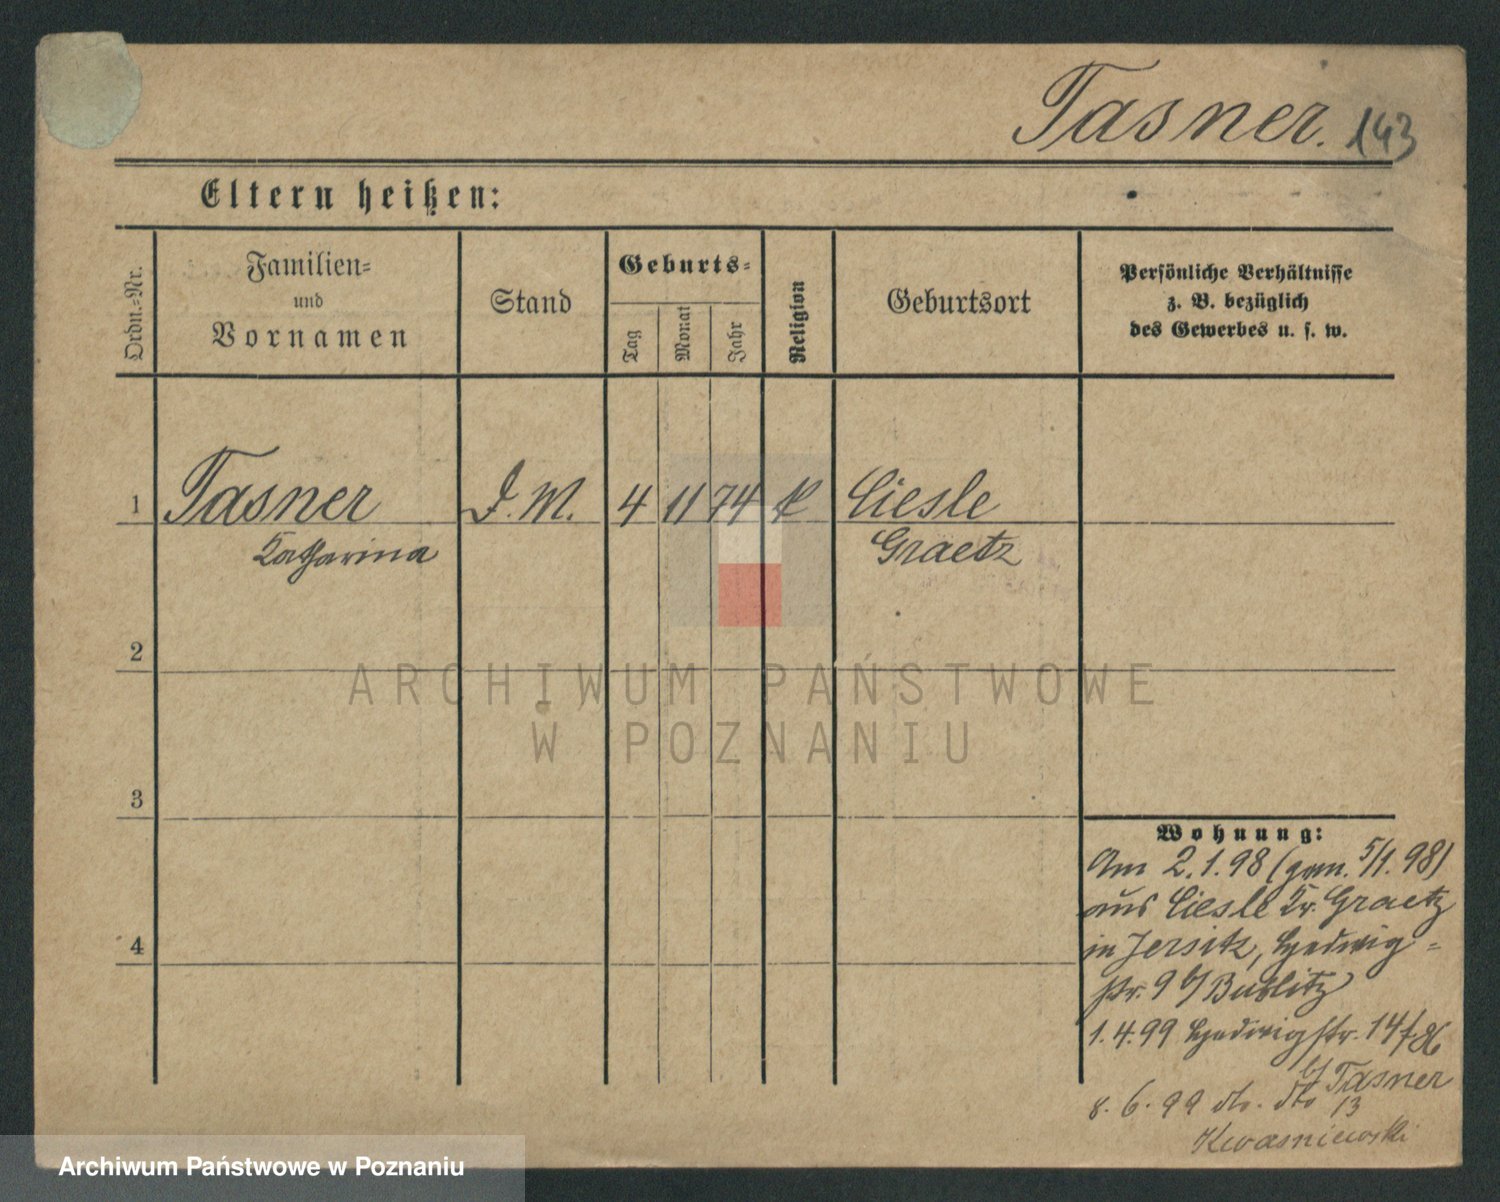 Tasner. 143
Eltern heißen:
Ordn.-Nr.
Familien-
und
Vornamen
Stand
Geburts-
Tag
Monat
Jahr
Religion
Geburtsort
Persönliche Verhältnisse
z. B. bezüglich
des Gewerbes u. s. w.
1 Tasner D. M. 4 11 74 k Ciesle
Katharina Graetz
2
3
4
ARCHIWUM PAŃSTWOWE
W POZNANIU
Wohnung:
Am 2.1.98 (gem. 5/1.98)
aus Ciesle Kr. Graetz
in Jersitz, Hedwig-
str. 9 b/ Bublitz
1.4.99 Hedwigstr. 14
b/ Tasner
8.6.99 do. dto 13
Kwasniewski
Archiwum Państwowe w Poznaniu